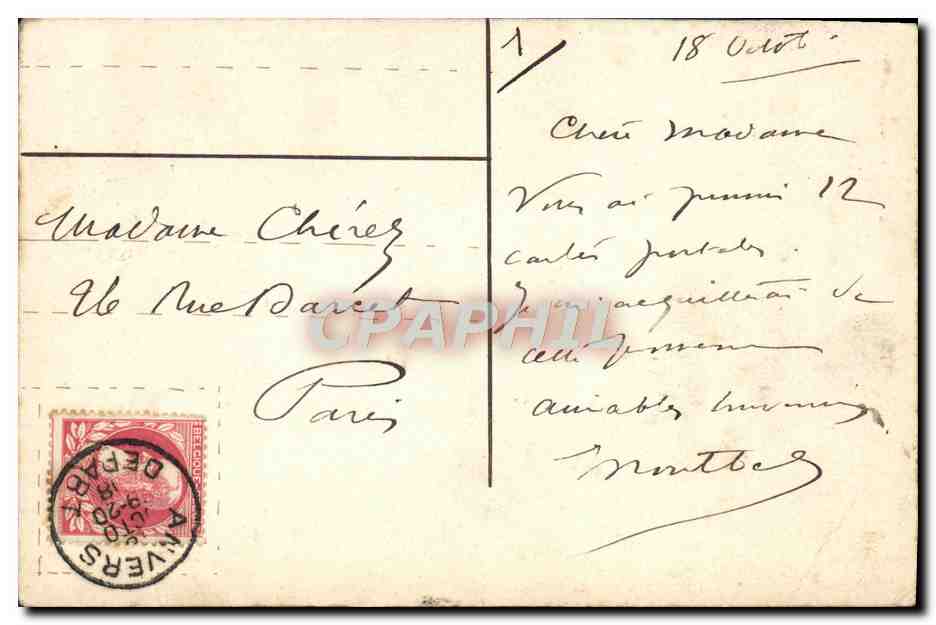 1
18 Octob.
Chère Madame
Vous ai promis 12
cartes postales.
Je m'acquitterai de
cette promesse
aimables souvenirs
Madame Chérez
26 Rue Darcet
Paris
CPAPHIL
BELGIQUE
ANVERS
DEPART
18
9-20